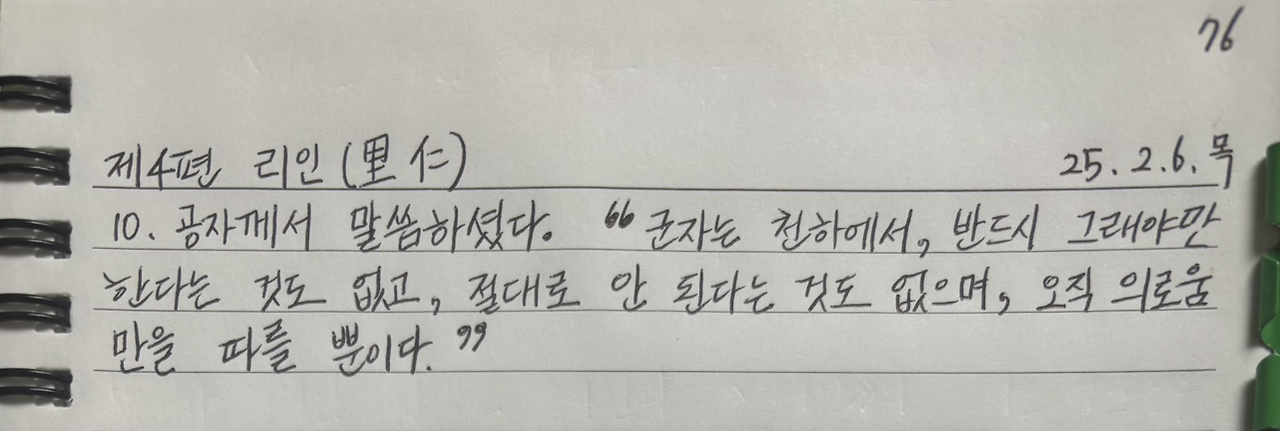 76
제4편 리인(里仁) 25.2.6.목
10. 공자께서 말씀하셨다. "군자는 천하에서, 반드시 그래야만
한다는 것도 없고, 절대로 안 된다는 것도 없으며, 오직 의로움
만을 따를 뿐이다."